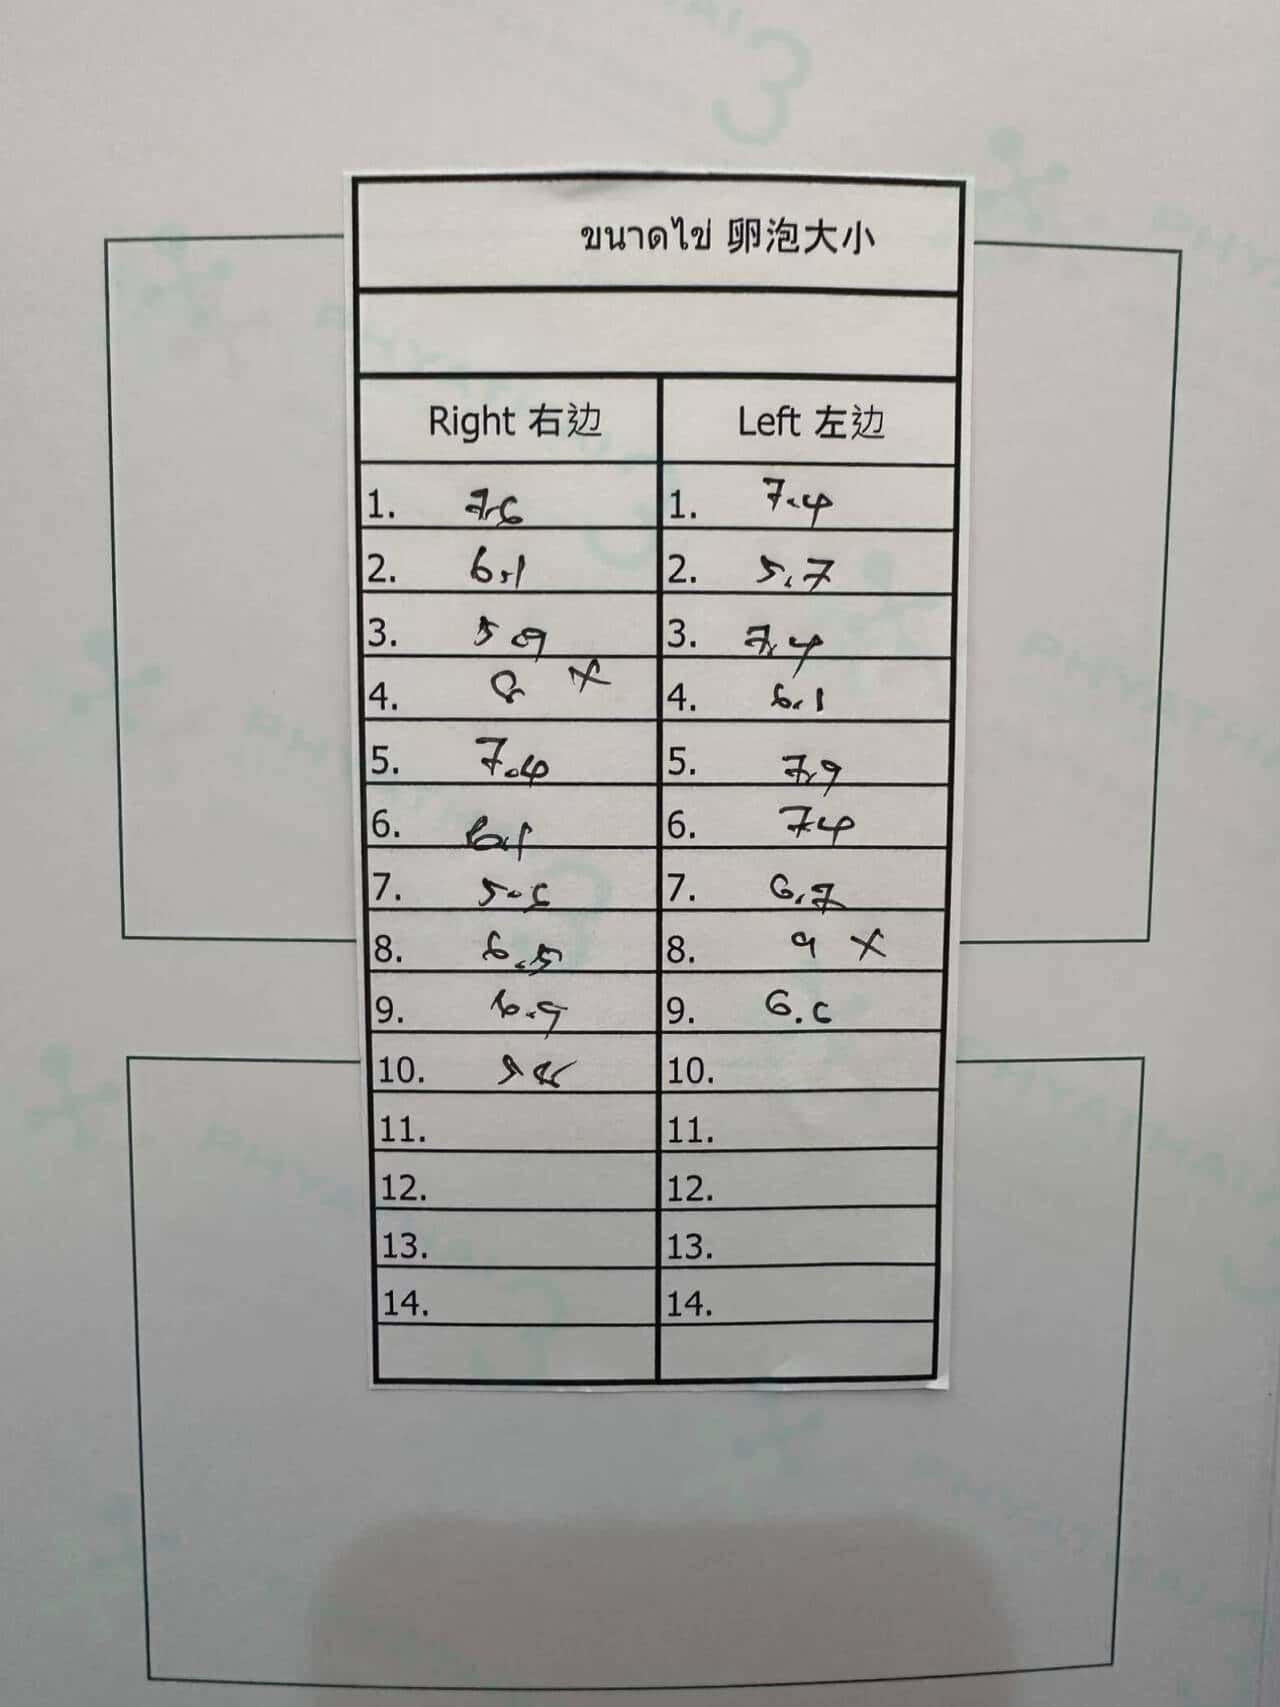 ขนาดไข่ 卵泡大小
Right 右边 Left 左边
1. 7.6 1. 7.4
2. 6.1 2. 5.7
3. 5.9 3. 7.4
4. 8 X 4. 6.1
5. 7.4 5. 7.9
6. 6.1 6. 7.4
7. 5.5 7. 6.7
8. 6.5 8. 9 X
9. 6.9 9. 6.6
10. 10.
11. 11.
12. 12.
13. 13.
14. 14.